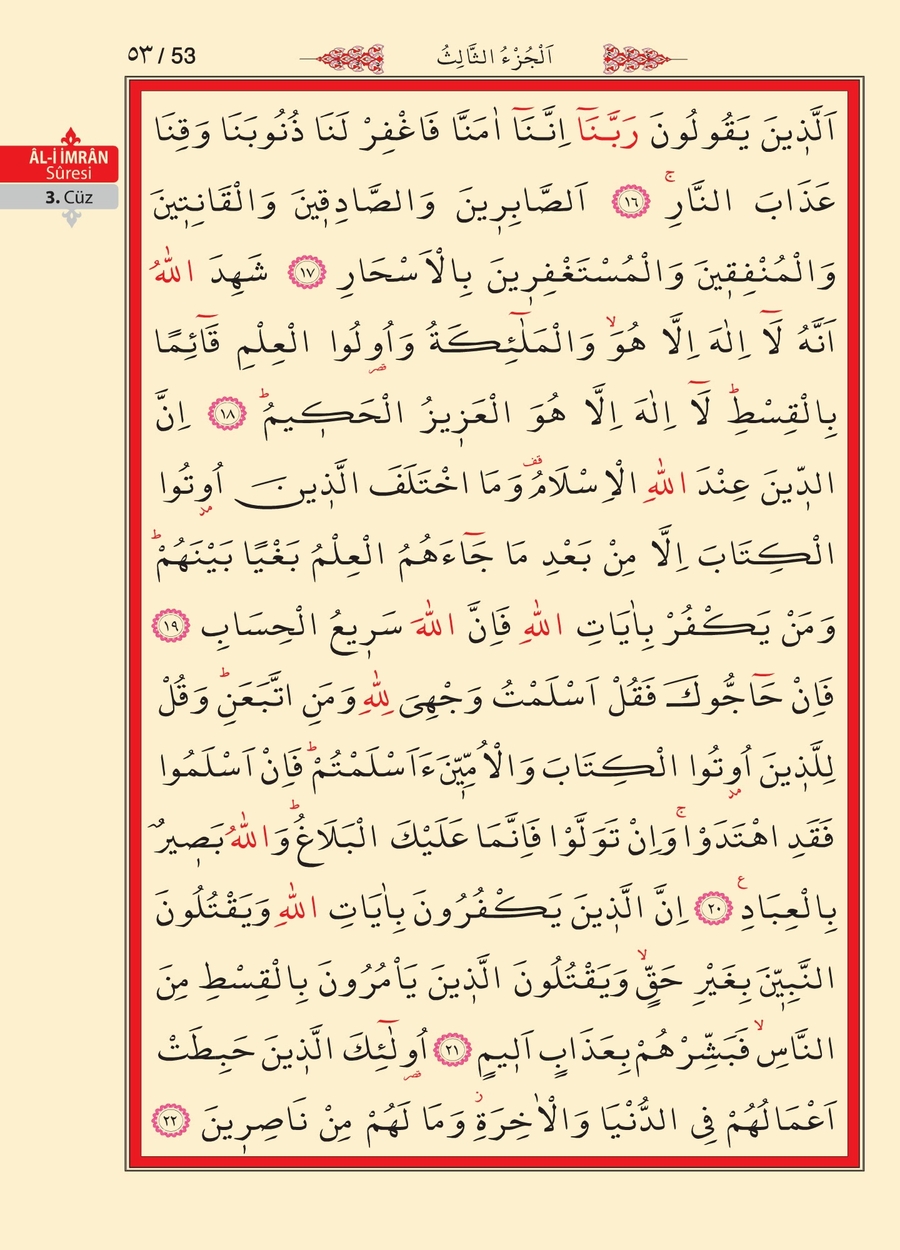 ٥٣ / 53
اَلْجُزْءُ الثَّالِثُ
ÂL-İ İMRÂN
Sûresi
3. Cüz
اَلَّذ۪ينَ يَقُولُونَ رَبَّنَٓا اِنَّنَٓا اٰمَنَّا فَاغْفِرْ لَنَا ذُنُوبَنَا وَقِنَا
عَذَابَ النَّارِۚ ﴿١٦﴾ اَلصَّابِر۪ينَ وَالصَّادِق۪ينَ وَالْقَانِت۪ينَ
وَالْمُنْفِق۪ينَ وَالْمُسْتَغْفِر۪ينَ بِالْاَسْحَارِ ﴿١٧﴾ شَهِدَ اللّٰهُ
اَنَّهُ لَٓا اِلٰهَ اِلَّا هُوَۙ وَالْمَلٰٓئِكَةُ وَاُو۬لُوا الْعِلْمِ قَٓائِمًا
بِالْقِسْطِۜ لَٓا اِلٰهَ اِلَّا هُوَ الْعَز۪يزُ الْحَك۪يمُۜ ﴿١٨﴾ اِنَّ
الدّ۪ينَ عِنْدَ اللّٰهِ الْاِسْلَامُ۠ وَمَا اخْتَلَفَ الَّذ۪ينَ اُو۫تُوا
الْكِتَابَ اِلَّا مِنْ بَعْدِ مَا جَٓاءَهُمُ الْعِلْمُ بَغْيًا بَيْنَهُمْۜ
وَمَنْ يَكْفُرْ بِاٰيَاتِ اللّٰهِ فَاِنَّ اللّٰهَ سَر۪يعُ الْحِسَابِ ﴿١٩﴾
فَاِنْ حَٓاجُّوكَ فَقُلْ اَسْلَمْتُ وَجْهِيَ لِلّٰهِ وَمَنِ اتَّبَعَنِۜ وَقُلْ
لِلَّذ۪ينَ اُو۫تُوا الْكِتَابَ وَالْاُمِّيّ۪نَ ءَاَسْلَمْتُمْۜ فَاِنْ اَسْلَمُوا
فَقَدِ اهْتَدَوْاۚ وَاِنْ تَوَلَّوْا فَاِنَّمَا عَلَيْكَ الْبَلَاغُۜ وَاللّٰهُ بَص۪يرٌ
بِالْعِبَادِ۟ ﴿٢٠﴾ اِنَّ الَّذ۪ينَ يَكْفُرُونَ بِاٰيَاتِ اللّٰهِ وَيَقْتُلُونَ
النَّبِيّ۪نَ بِغَيْرِ حَقٍّۙ وَيَقْتُلُونَ الَّذ۪ينَ يَاْمُرُونَ بِالْقِسْطِ مِنَ
النَّاسِۙ فَبَشِّرْهُمْ بِعَذَابٍ اَل۪يمٍ ﴿٢١﴾ اُو۬لٰٓئِكَ الَّذ۪ينَ حَبِطَتْ
اَعْمَالُهُمْ فِي الدُّنْيَا وَالْاٰخِرَةِۘ وَمَا لَهُمْ مِنْ نَاصِر۪ينَ ﴿٢٢﴾